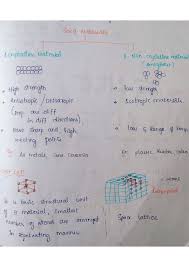 Solid materials
1. Crystalline material
2. Non crystalline material
(amorphous)
• High strength
• low strength
• Anisotropic / 
• Isotropic materials
(prop are diff
in diff directions)
• have sharp and high
melting points
• low & range of
Ex: metals, 
Ex: plastic, Rubber
unit cell
is a basic structural unit
of a material, smallest
number of atoms are arranged
in repeating manner
Space lattice